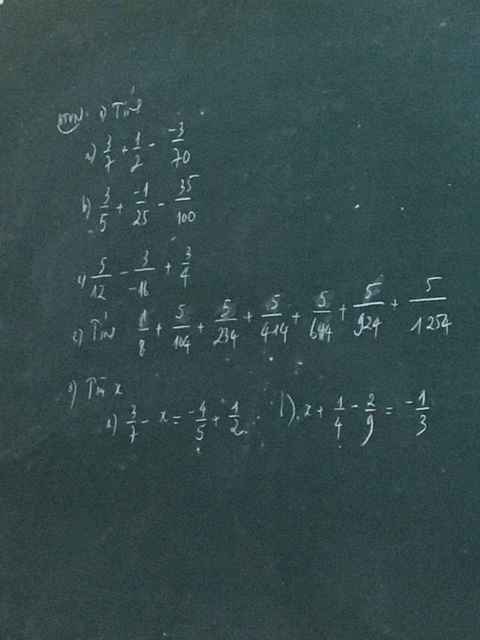 1) Tính
a) 3/7 + 1/2 - -3/70
b) 3/5 + -1/25 - 35/100
c) 5/12 - 3/-16 + 3/4
2) Tính 1/8 + 5/104 + 5/234 + 5/414 + 5/644 + 5/924 + 5/1254
Tìm x
a) 3/7 - x = -4/5 + 1/2 b) x + 1/4 - 2/9 = -1/3